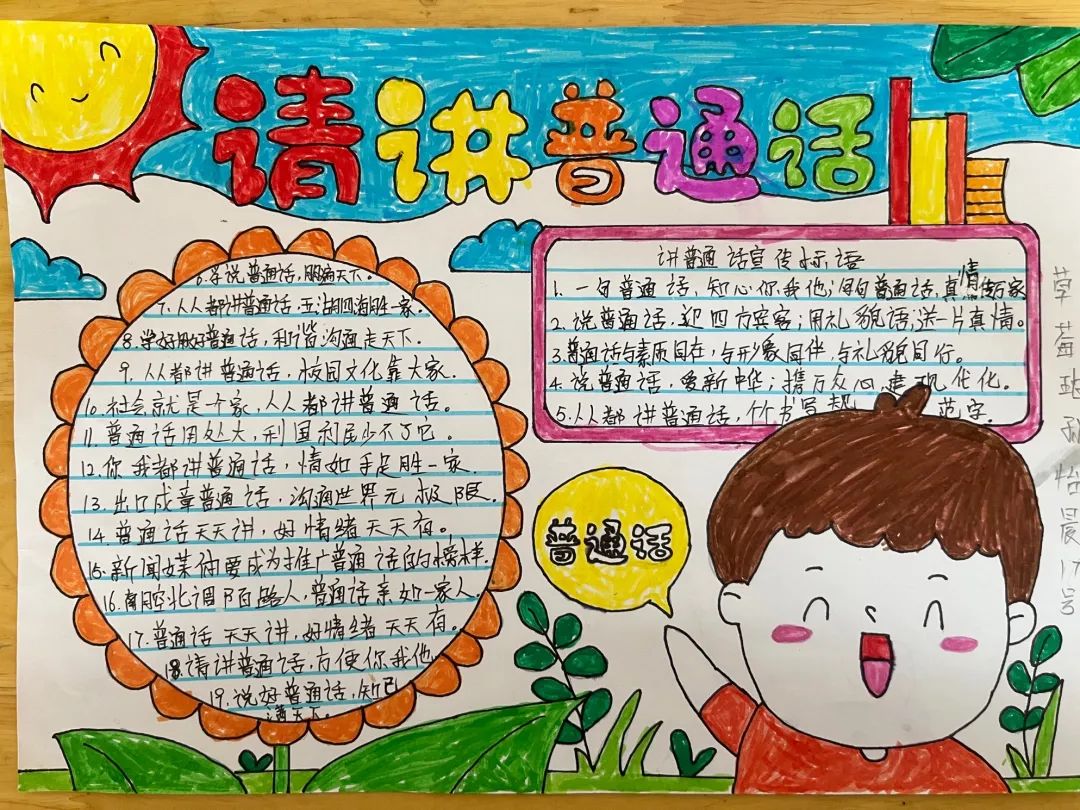 请讲普通话
讲普通话宣传标语
1. 一句普通话，知心你我他；句句普通话，真情传万家
2. 说普通话，迎四方宾客；用礼貌话，送一片真情。
3. 普通话与素质同在，与形象同伴，与礼貌同行。
4. 说普通话，爱新中华；携万众心，建现代化。
5. 人人都讲普通话，个个书写规范字。
6. 学说普通话，朋遍天下。
7. 人人都讲普通话，五湖四海胜一家。
8. 学好用好普通话，和谐沟通走天下。
9. 人人都讲普通话，校园文化靠大家.
10. 社会就是个家，人人都讲普通话。
11. 普通话用处大，利国利民少不了它。
12. 你我都讲普通话，情如手足胜一家.
13. 出口成章普通话，沟通世界无极限。
14. 普通话天天讲，好情绪天天有。
15. 新闻媒体要成为推广普通话的榜样.
16. 南腔北调陌路人，普通话亲如一家人.
17. 普通话天天讲，好情绪天天有。
18. 请讲普通话，方便你我他
19. 说好普通话，知己
满天下。
普通话
草莓班 孙怡晨 17号